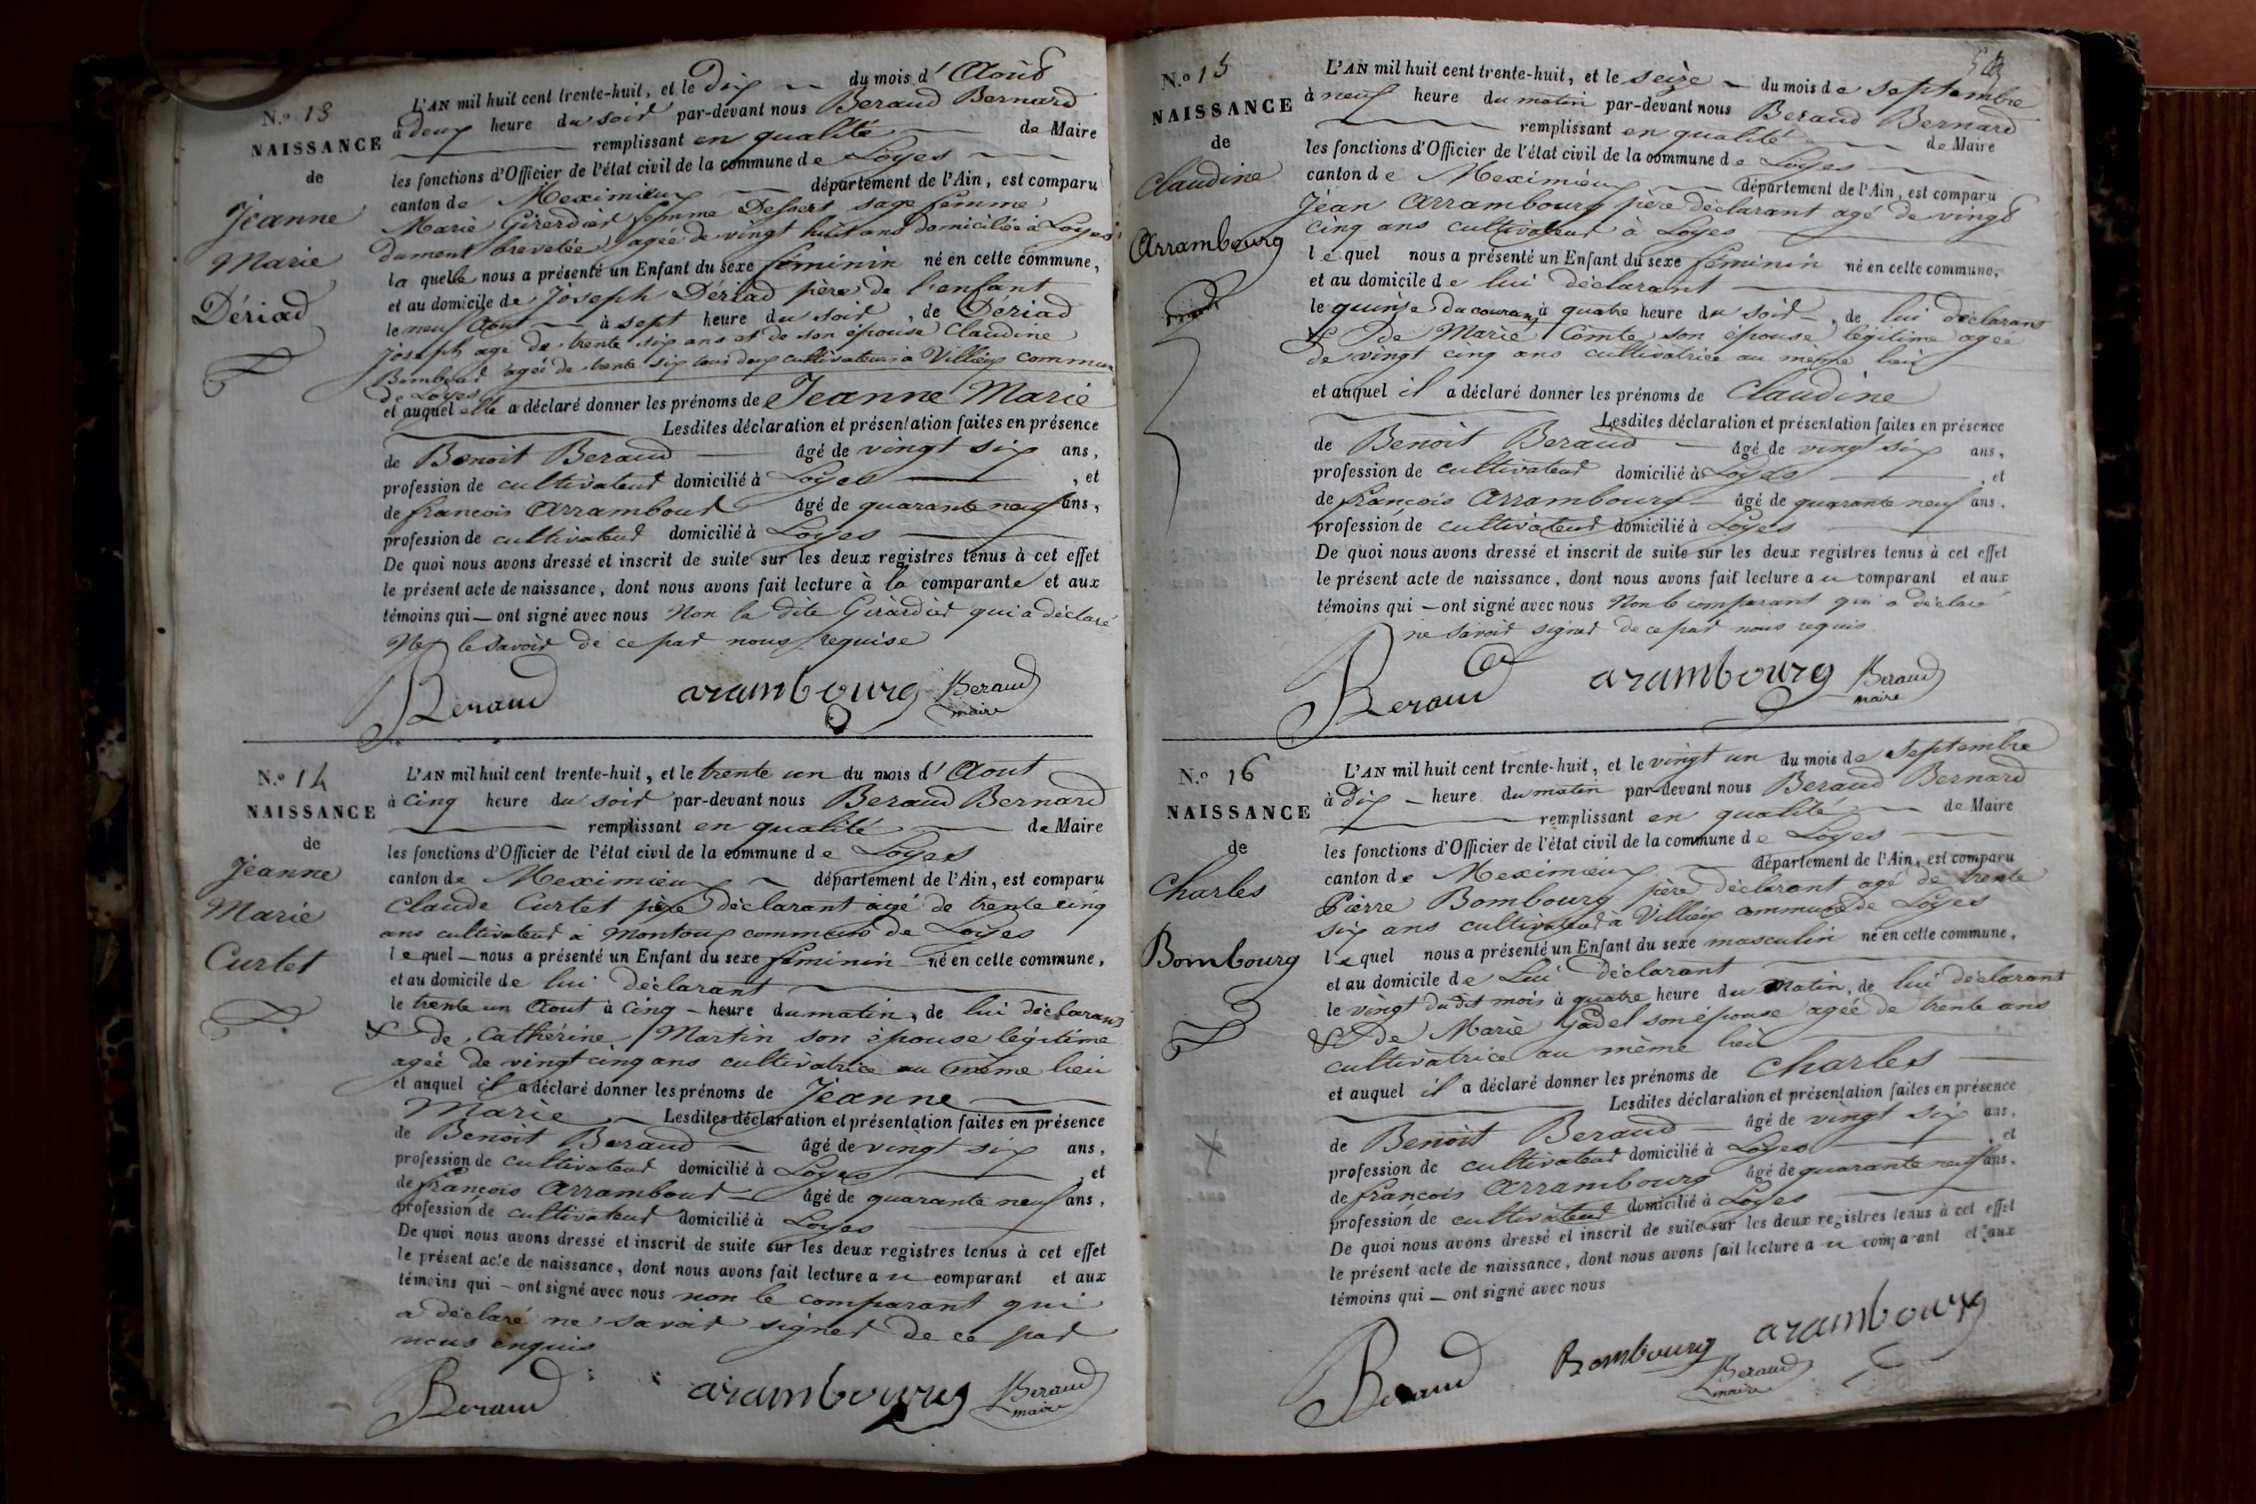 N.o 13
NAISSANCE
de
Jeanne
Marie
Dériad
L'AN mil huit cent trente-huit, et le Dix du mois d' Août
à deux heure du soir par-devant nous Beraud Bernard
remplissant en qualité de Maire
les fonctions d'Officier de l'état civil de la commune de Loyes
canton de Meximieux département de l'Ain, est comparu
Marie Girerdier femme Dessert sage femme
dument brevetée agée de vingt huit ans domiciliée à Loyes
la quelle nous a présenté un Enfant du sexe féminin né en cette commune,
et au domicile de Joseph Dériad père de l'enfant
le neuf Aout à sept heure du soir, de Dériad
Joseph agé de trente six ans et de son épouse Claudine
agée de trente six tous deux cultivateurs à Villieux commune
de Loyes
et auquel elle a déclaré donner les prénoms de Jeanne Marie
Lesdites déclaration et présentation faites en présence
de Benoit Beraud âgé de vingt six ans,
profession de cultivateur domicilié à Loyes, et
de françois Arrambour âgé de quarante neuf ans,
profession de cultivateur domicilié à Loyes
De quoi nous avons dressé et inscrit de suite sur les deux registres tenus à cet effet
le présent acte de naissance, dont nous avons fait lecture à la comparante et aux
témoins qui — ont signé avec nous Non la dite Girardier qui a déclaré
Ne le savoir de ce par nous requise
Beraud arambourg Beraud
maire
N.o 14
NAISSANCE
de
Jeanne
Marie
Curtet
L'AN mil huit cent trente-huit, et le trente un du mois d' Aout
à cinq heure du soir par-devant nous Beraud Bernard
remplissant en qualité de Maire
les fonctions d'Officier de l'état civil de la commune de Loyes
canton de Meximieux département de l'Ain, est comparu
Claude Curtet père déclarant agé de trente cinq
ans cultivateur à Montoux commune de Loyes
le quel — nous a présenté un Enfant du sexe féminin né en cette commune,
et au domicile de lui déclarant
le trente un Aout à cinq — heure du matin, de lui déclarant
& de Cathérine Martin son épouse légitime
agée de vingt cinq ans cultivatrice au même lieu
et auquel il a déclaré donner les prénoms de Jeanne
Marie Lesdites déclaration et présentation faites en présence
de Benoit Beraud âgé de vingt six ans,
profession de cultivateur domicilié à Loyes, et
de françois Arrambour âgé de quarante neuf ans,
profession de cultivateur domicilié à Loyes
De quoi nous avons dressé et inscrit de suite sur les deux registres tenus à cet effet
le présent acte de naissance, dont nous avons fait lecture au comparant et aux
témoins qui — ont signé avec nous non le comparant qui
a déclaré ne savoir signer de ce par
nous enquis
Beraud arambourg Beraud
maire
N.o 15
NAISSANCE
de
Claudine
Arrambourg
L'AN mil huit cent trente-huit, et le seize du mois de septembre
à neuf heure du matin par-devant nous Beraud Bernard
remplissant en qualité de Maire
les fonctions d'Officier de l'état civil de la commune de Loyes
canton de Meximieux département de l'Ain, est comparu
Jean Arrambourg père déclarant agé de vingt
cinq ans cultivateur à Loyes
le quel nous a présenté un Enfant du sexe féminin né en cette commune,
et au domicile de lui déclarant
le quinze du courant à quatre heure du soir, de lui déclarant
& de Marie Comte son épouse légitime agée
de vingt cinq ans cultivatrice au même lieu
et auquel il a déclaré donner les prénoms de Claudine
Lesdites déclaration et présentation faites en présence
de Benoit Beraud âgé de vingt six ans,
profession de cultivateur domicilié à Loyes, et
de françois Arrambourg âgé de quarante neuf ans.
profession de cultivateur domicilié à Loyes
De quoi nous avons dressé et inscrit de suite sur les deux registres tenus à cet effet
le présent acte de naissance, dont nous avons fait lecture au comparant et aux
témoins qui — ont signé avec nous Non le comparant qui a déclaré
ne savoir signer de ce par nous requis
Beraud arambourg Beraud
maire
N.o 16
NAISSANCE
de
Charles
Bombourg
L'AN mil huit cent trente-huit, et le vingt un du mois de septembre
à dix — heure du matin par-devant nous Beraud Bernard
remplissant en qualité de Maire
les fonctions d'Officier de l'état civil de la commune de Loyes
canton de Meximieux département de l'Ain, est comparu
Pierre Bombourg père déclarant agé de trente
six ans cultivateur à Villieux commune de Loyes
le quel nous a présenté un Enfant du sexe masculin né en cette commune,
et au domicile de Lui déclarant
le vingt du dit mois à quatre heure du Matin, de lui déclarant
& De Marie Gadel son épouse agée de trente ans
cultivatrice au même lieu
et auquel il a déclaré donner les prénoms de Charles
Lesdites déclaration et présentation faites en présence
de Benoit Beraud âgé de vingt six ans,
profession de cultivateur domicilié à Loyes, et
de françois Arrambourg âgé de quarante neuf ans.
profession de cultivateur domicilié à Loyes
De quoi nous avons dressé et inscrit de suite sur les deux registres tenus à cet effet
le présent acte de naissance, dont nous avons fait lecture au comparant et aux
témoins qui — ont signé avec nous
Beraud Bombourg arambourg
Beraud
maire